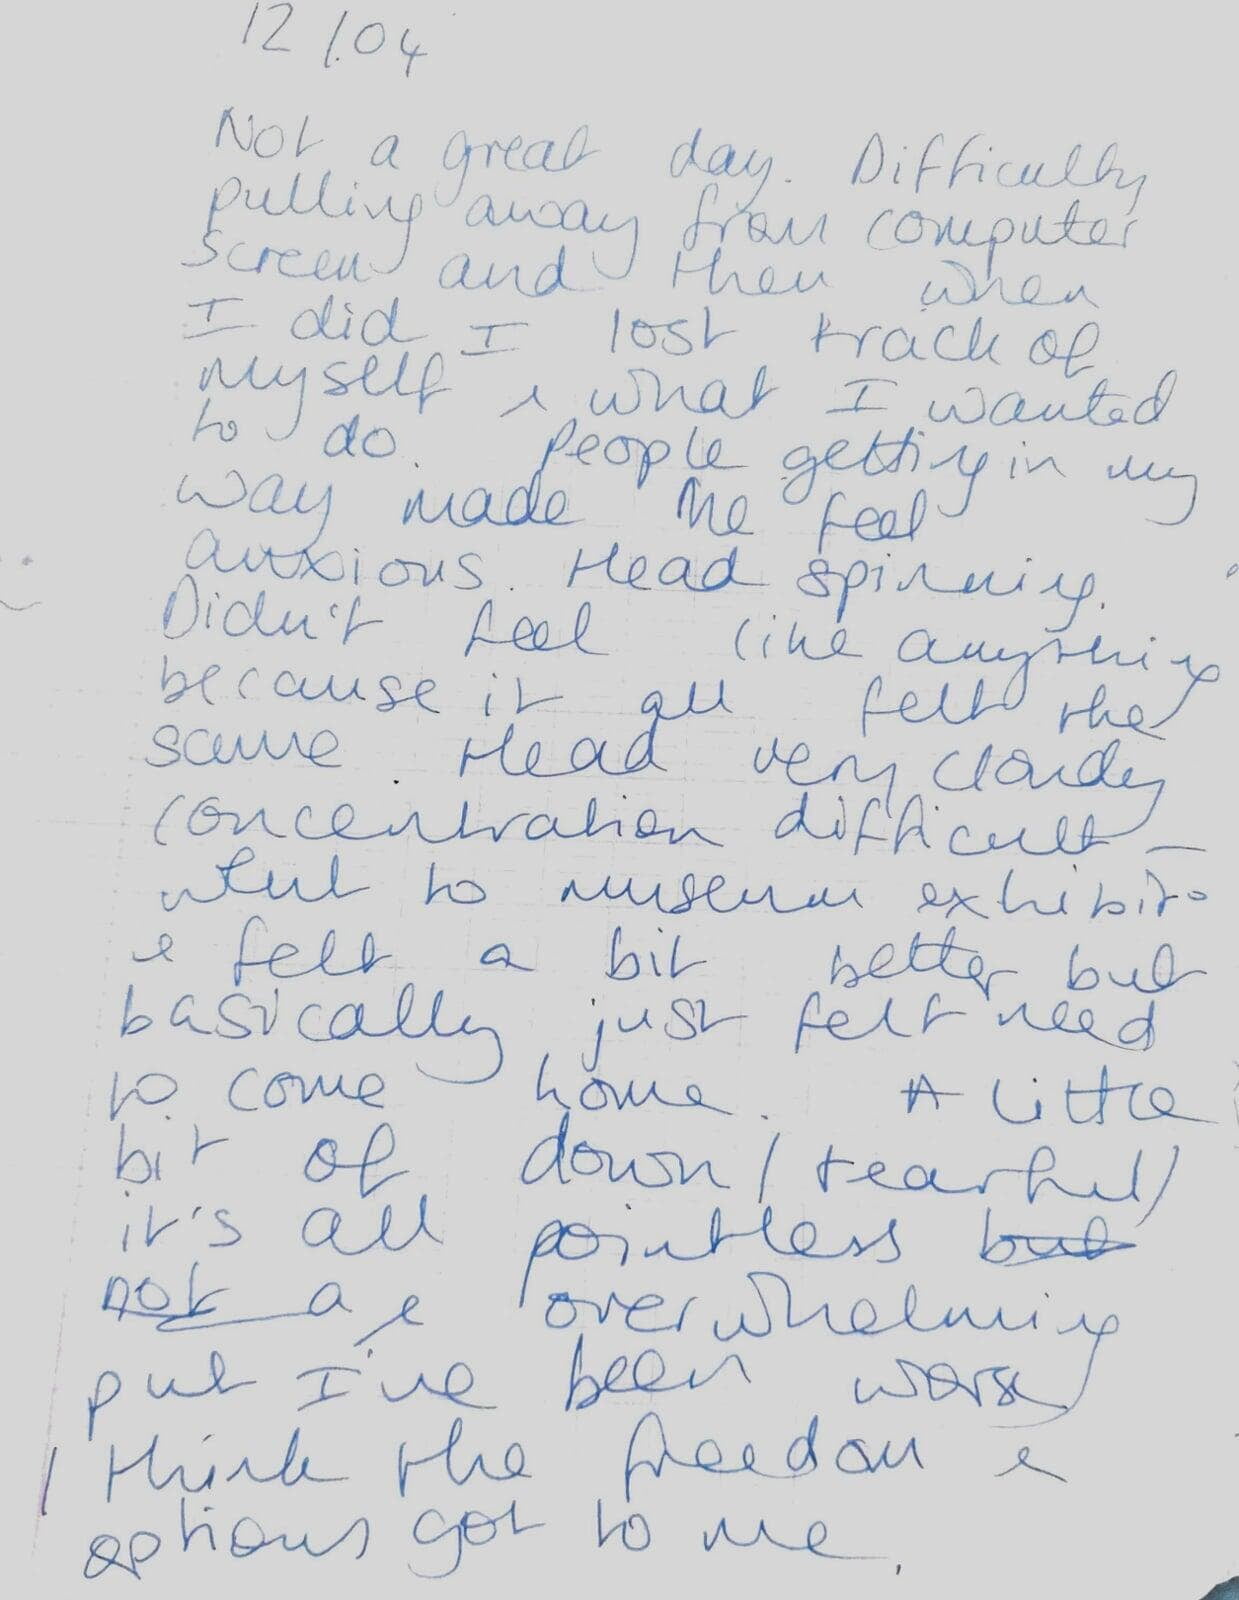 12/.04
Not a great day. Difficulty
pulling away from computer
screen and then when
I did I lost track of
myself & what I wanted
to do. People getting in my
way made me feel
anxious. Head spinning.
Didn't feel like anything
because it all felt the
same. Head very cloudy
concentration difficult -
went to museum exhibit
& felt a bit better but
basically just felt need
to come home. A little
bit of down/tearful/
it's all pointless but
not a & overwhelming
but I've been worse
I think the freedom &
options got to me.